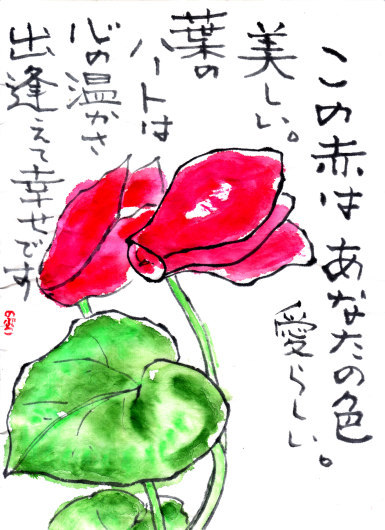 この赤は あなたの色
愛らしい。
美しい。
葉の
ハートは
心の温かさ
出逢えて幸せです